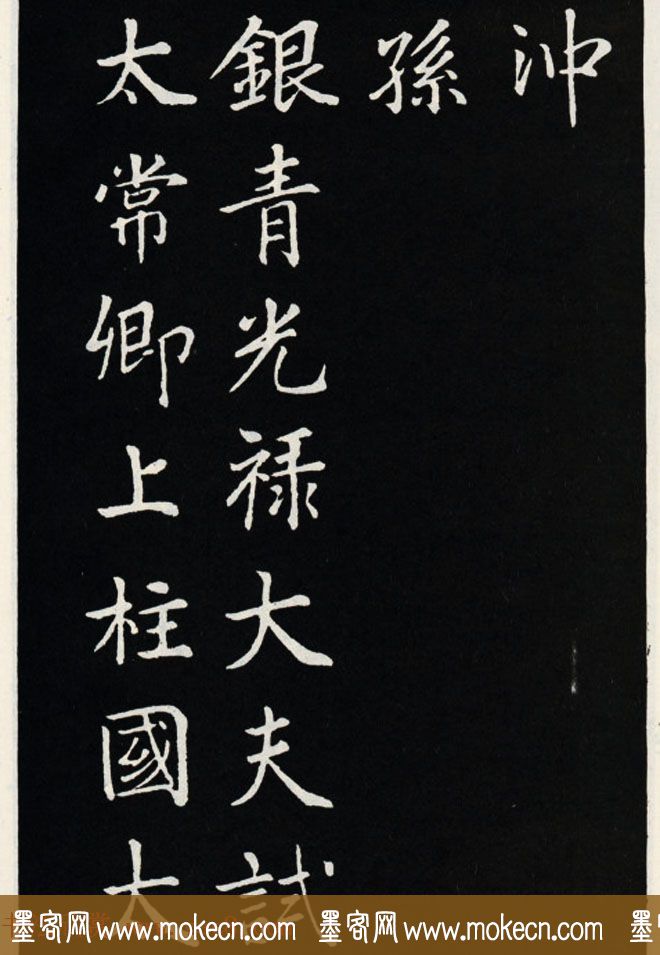 沖
孫
銀青光禄大夫試
太常卿上柱國太
墨客网 www.mokecn.com 墨客网 www.mokecn.com 墨